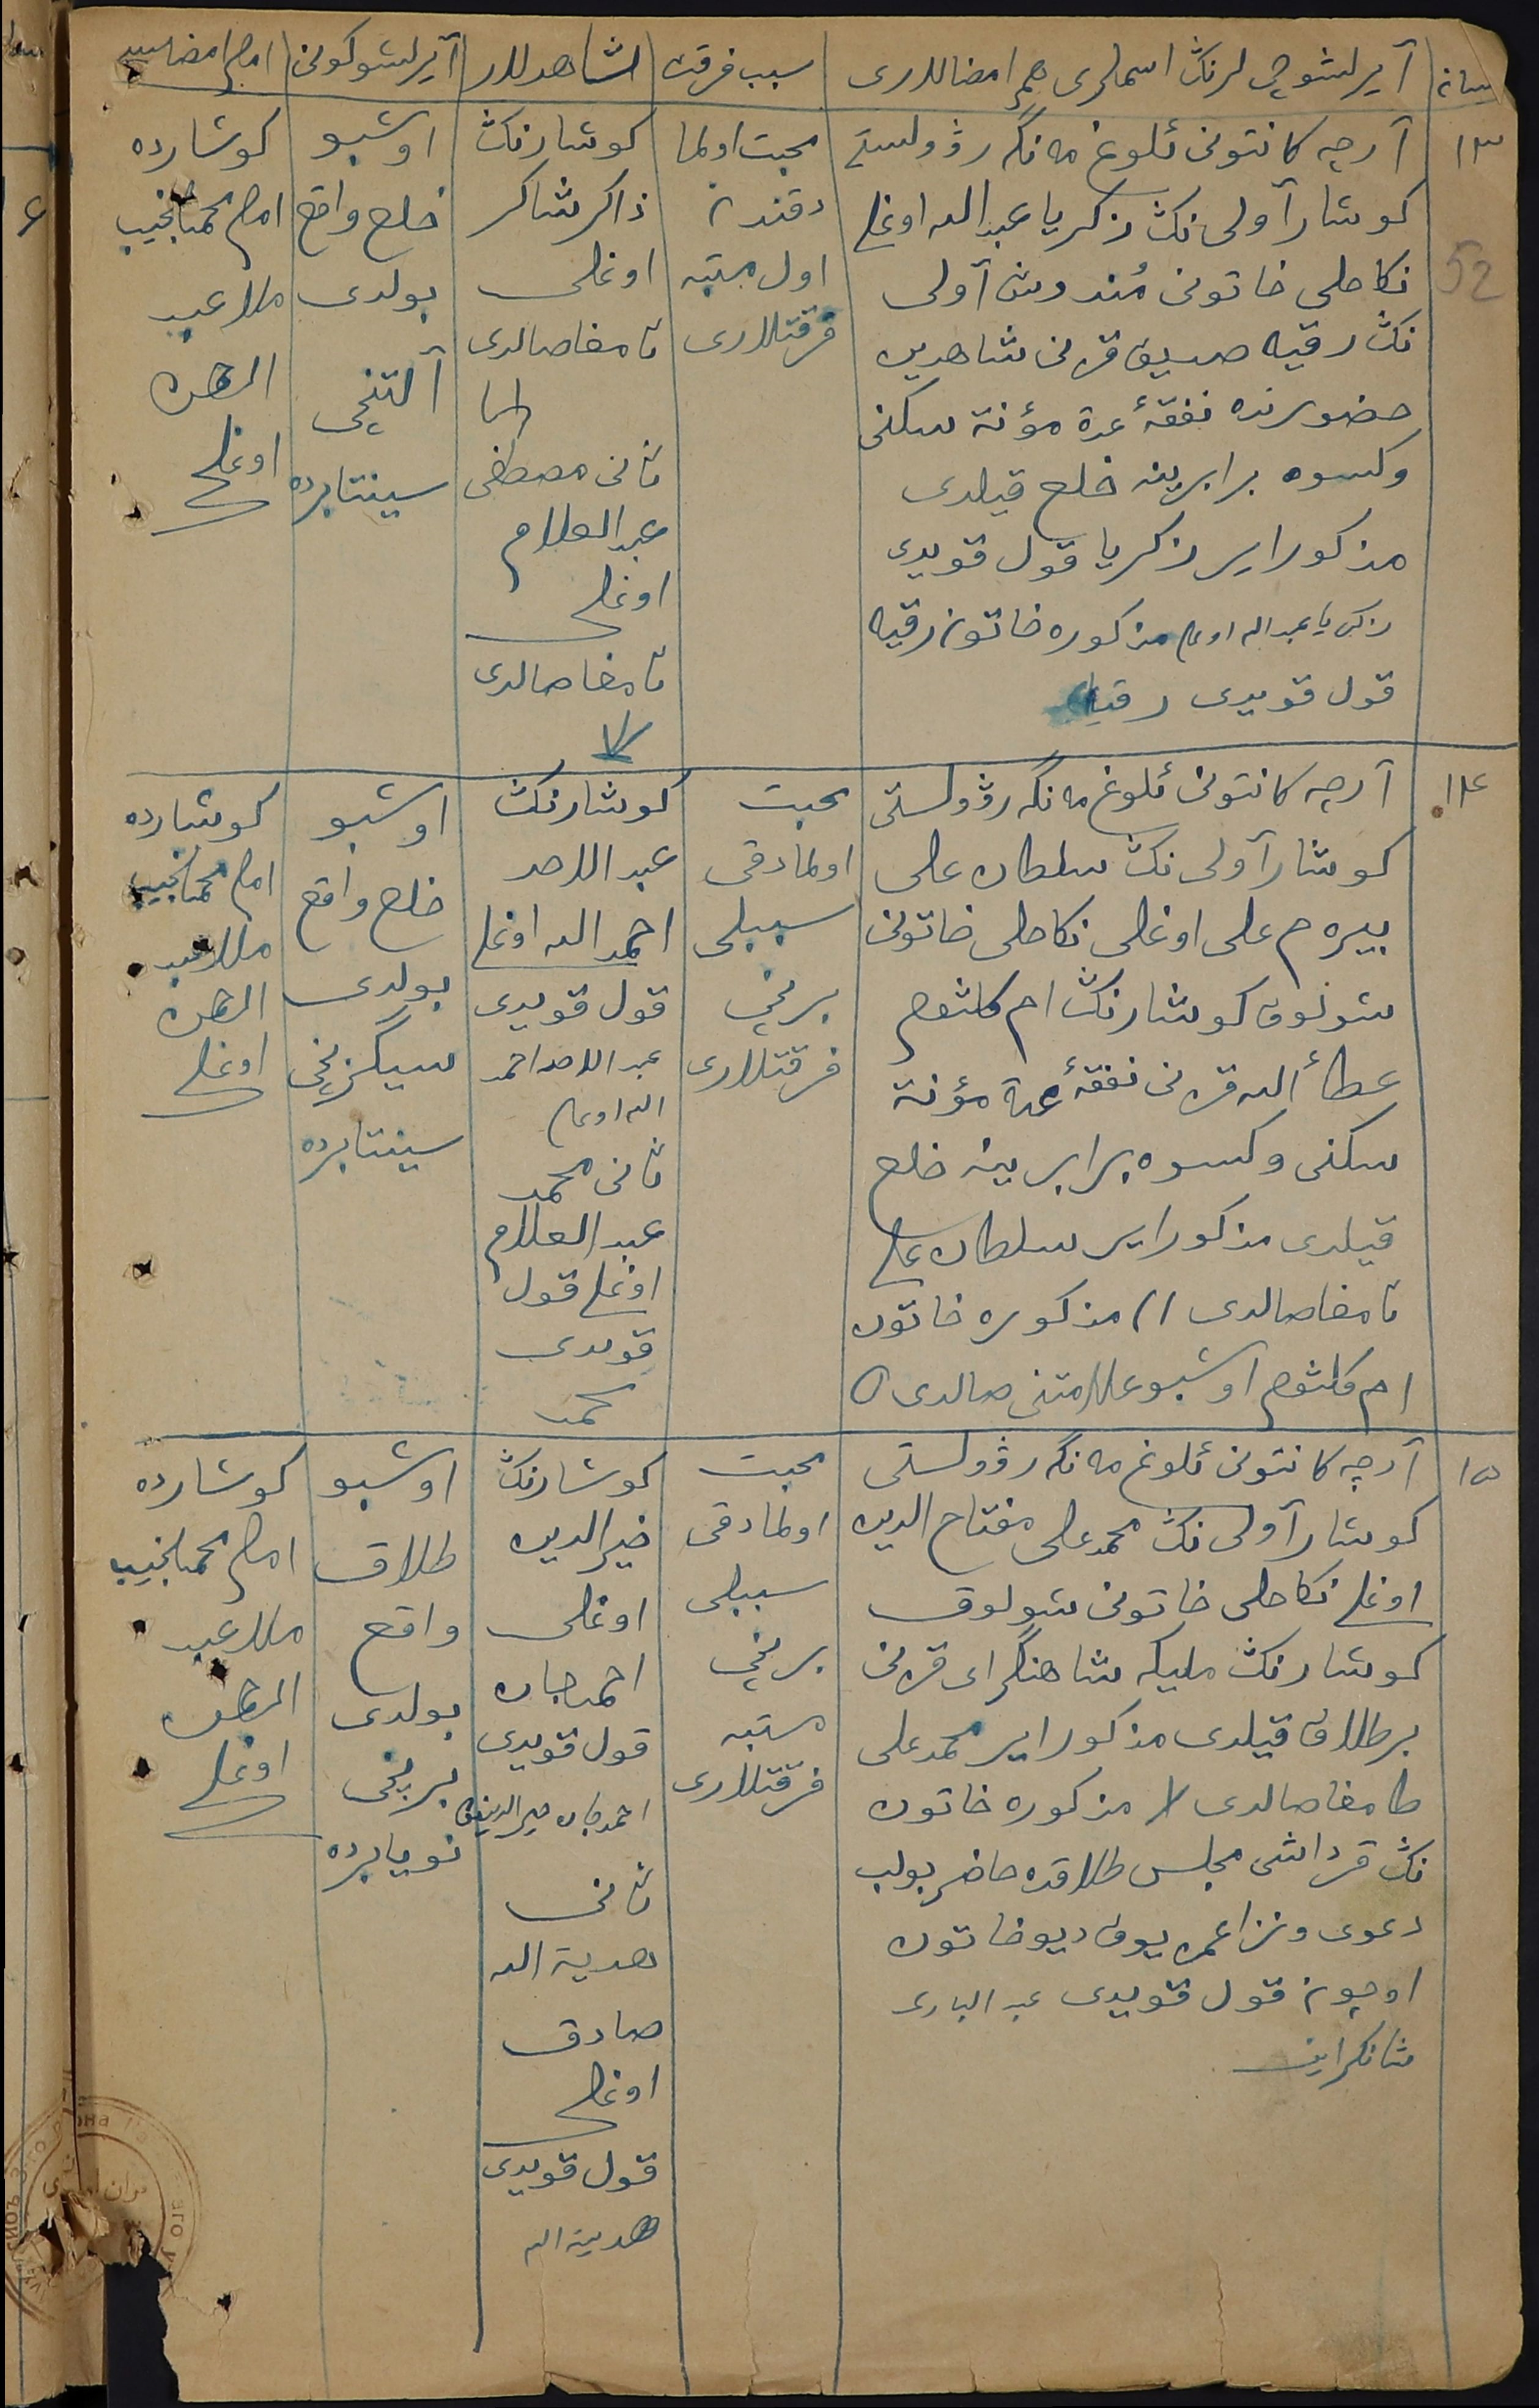 آیرلشوچی لرنڭ اسملری هم امضالاری
سبب فرقت
شاهدلر
آیرلشو کونی
امام امضاسی
۱۳
آرچه کانتونی ئلوغ مه نگه ر ۋولستی
کوشار آولی نڭ زکریا عبد الله اوغلی
نکاحلی خاتونی مُندوش آولی
نڭ رقیه صدیق قزنی شاهدین
حضورنده نفقهٔ عدة مؤنة سکنی
وکسوه برابرینه خلع قیلدی
مذکور ایر زکریا قول قویدی
زکریا عبد الله اوغلی مذکوره خاتون رقیه
قول قویدی رقیه
محبت اولما
دقندن
اول مرتبه
فرقتلاری
کوشارنڭ
ذاکر شاکر
اوغلی
تامغا صالدی
ثانی مصطفی
عبد العلام
اوغلی
تامغا صالدی
اوشبو
خلع واقع
بولدی
آلتنچی
سینتابرده
کوشارده
امام محمد نجیب
ملا عبد
الرحمن
اوغلی
52
۱۴
آرچه کانتونی ئلوغ مه نگه ر ۋولستی
کوشار آولی نڭ سلطان علی
بیره م علی اوغلی نکاحلی خاتونی
شولوق کوشارنڭ ام کلثوم
عطأ الله قزنی نفقهٔ عدة مؤنة
سکنی وکسوه برابرینه خلع
قیلدی مذکور ایر سلطان علی
تامغا صالدی // مذکوره خاتون
ام کلثوم اوشبو علامتنی صالدی O
محبت
اولمادقی
سببلی
برنچی
فرقتلاری
کوشارنڭ
عبد الاحد
احمد الله اوغلی
قول قویدی
عبد الاحد احمد
الله اوغلی
ثانی محمد
عبد العلام
اوغلی قول
قویدی
محمد
اوشبو
خلع واقع
بولدی
سیگزنچی
سینتابرده
کوشارده
امام محمد نجیب
ملا عبد
الرحمن
اوغلی
۱۵
آرچه کانتونی ئلوغ مه نگه ر ۋولستی
کوشار آولی نڭ محمد علی مفتاح الدین
اوغلی نکاحلی خاتونی شولوق
کوشارنڭ ملیکه شاهنگرای قزنی
بر طلاق قیلدی مذکور ایر محمد علی
طامغا صالدی X مذکوره خاتون
نڭ قرداشی مجلس طلاقده حاضر بولب
دعوی ونزاعم یوق دیو خاتون
اوچون قول قویدی عبد الباری
محبت
اولمادقی
سببلی
برنچی
مرتبه
فرقتلاری
کوشارنڭ
خیر الدین
اوغلی
احمدجان
قول قویدی
احمدجان خیرالدینف
ثانی
هدیة الله
صادق
اوغلی
قول قویدی
هدیة الله
اوشبو
طلاق
واقع
بولدی
برنچی
نویابرده
کوشارده
امام محمد نجیب
ملا عبد
الرحمن
اوغلی